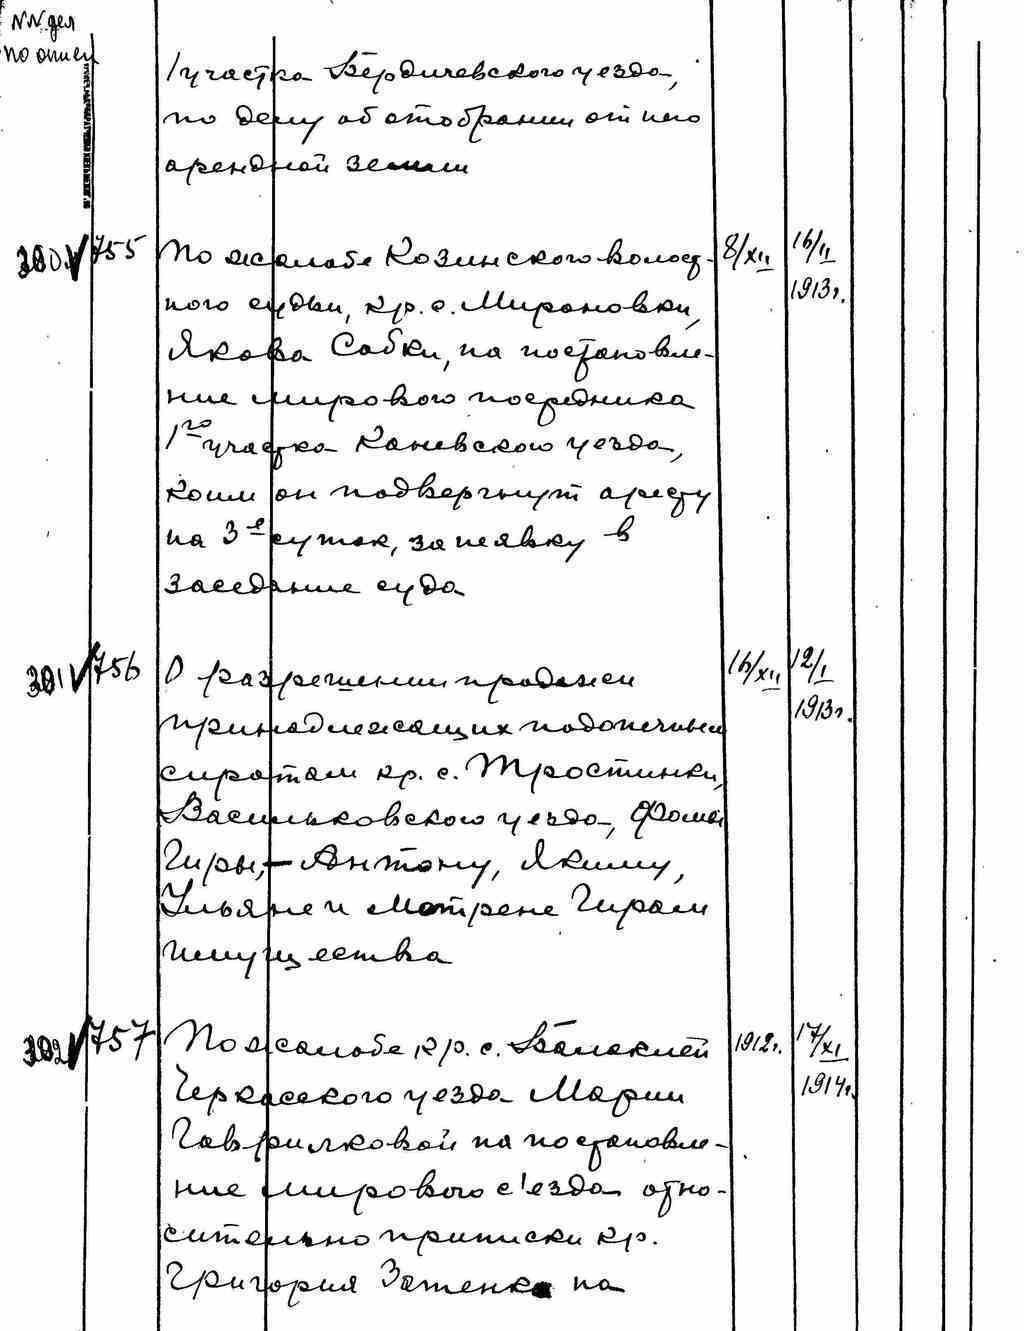 NN дел
по описи
1 участка Бердичевского уезда,
по делу об отобрании от него
арендной земли
300 755 По жалобе Козинского волост- 8/XII 16/II
1913г.
ного судьи, кр. с. Мироновки,
Якова Сабки, на постановле-
ние мирового посредника
1го участка Каневского уезда,
коим он подвергнут аресту
на 3е суток, за неявку в
заседание суда
301 756 О разрешении продажи 16/XII 12/I
1913г.
принадлежащих подопечным
сиротам кр. с. Тростинки,
Васильковского уезда, Фомы
Гиры,- Антону, Якиму,
Ульяне и Мотрене Гирам
имущества
302 757 По жалобе кр. с. Балаклей 1912г. 17/XI
1914г.
Черкасского уезда Марии
Гаврилковой на постановле-
ние мирового с'езда отно-
сительно приписки кр.
Григория Затенка на